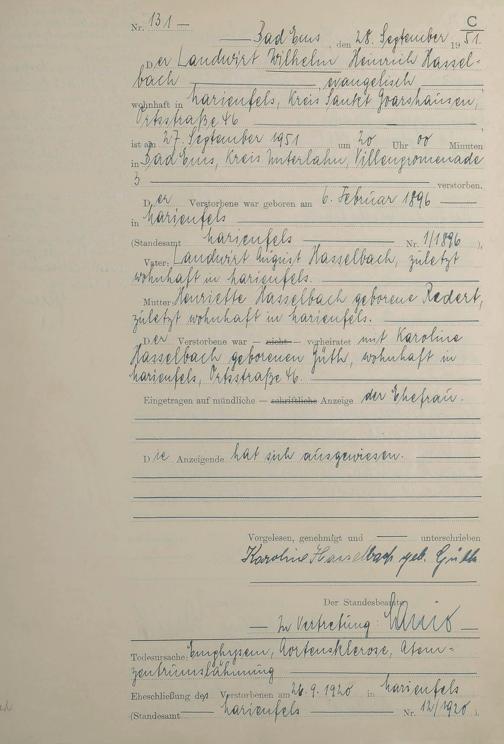 C
Nr. 131 —
Bad Ems, den 28. September 1951.
Der Landwirt Wilhelm Heinrich Hassel-
bach evangelisch
wohnhaft in Marienfels, Kreis Sankt Goarshausen,
Ortsstraße 46
ist am 27. September 1951 um 20 Uhr 00 Minuten
in Bad Ems, Kreis Unterlahn, Villenpromenade
3 verstorben.
Der Verstorbene war geboren am 6. Februar 1896
in Marienfels
(Standesamt Marienfels Nr. 1/1896 ).
Vater: Landwirt August Hasselbach, zuletzt
wohnhaft in Marienfels.
Mutter Henriette Hasselbach geborene Redert,
zuletzt wohnhaft in Marienfels.
Der Verstorbene war — nicht — verheiratet mit Karoline
Hasselbach geborenen Güth, wohnhaft in
Marienfels, Ortsstraße 46.
Eingetragen auf mündliche — schriftliche Anzeige der Ehefrau.
Die Anzeigende hat sich ausgewiesen.
Vorgelesen, genehmigt und — unterschrieben
Karoline Hasselbach geb. Güth
Der Standesbeamte
— In Vertretung:
Todesursache: Emphysem, Aortensklerose, Atem-
zentrumslähmung
Eheschließung des Verstorbenen am 26.9.1920 in Marienfels
(Standesamt Marienfels Nr. 12/1920 ).